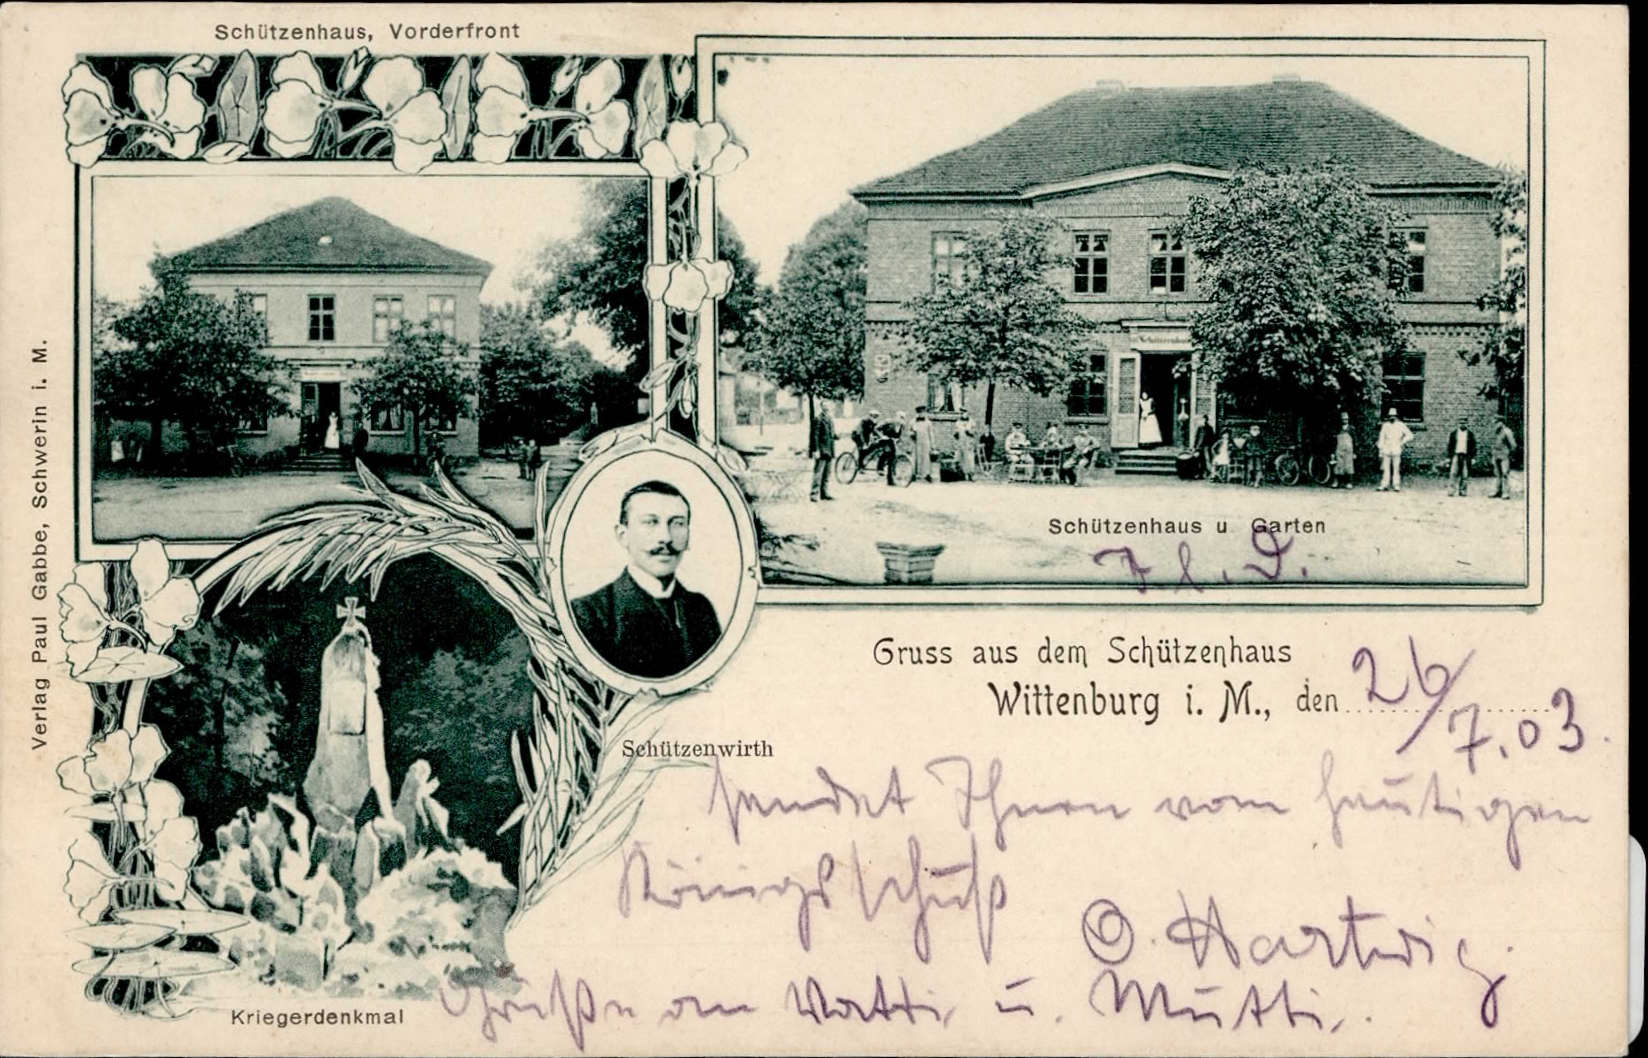 Schützenhaus, Vorderfront
Verlag Paul Gabbe, Schwerin i. M.
Schützenhaus u Garten
Gruss aus dem Schützenhaus
Wittenburg i. M., den 26/7.03.
Schützenwirth
sendet Ihnen vom heutigen
Königsschuß
O. Hartwig.
Kriegerdenkmal
Grüße an Vatti u. Mutti.